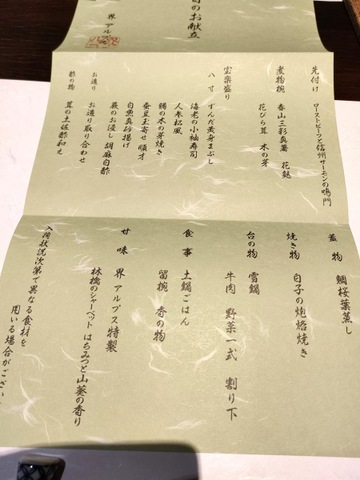 日のお献立
界 アル
先付け ローストビーフと信州サーモンの鳴門
煮物椀 春山三彩真薯 花麩
花びら茸 木の芽
宝楽盛り
八寸 ずんだ黄身まぶし
海老の小袖寿司
人参松風
鯛の木の芽焼き
蚕豆玉寄せ 順才
白魚真砂揚げ
蕨のお浸し 胡麻白酢
お造り お造り取り合わせ
酢の物 茸の土佐酢和え
蓋物 鯛桜葉蒸し
焼き物 白子の炮烙焼き
台の物 雪鍋
牛肉 野菜一式 割り下
食事 土鍋ごはん
留椀 香の物
甘味 界 アルプス特製
林檎のシャーベット はちみつと山葵の香り
入荷状況次第で異なる食材を
用いる場合がござい